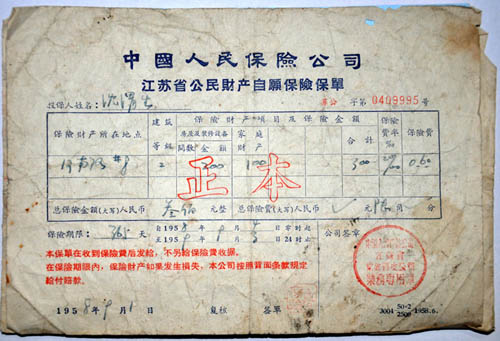 中國人民保險公司
江苏省公民財产自願保險保單
投保人姓名： 字第0409995号
保險財产所在地点 建筑等級 保險財产項目及保險金額 保險費率‰ 保險費
房屋及裝修設备 家庭財产 合計
間数 金額
2 200 100 300 0.60
正本
总保險金額(大写)人民币 叁佰 元整 总保險費(大写)人民币 元 陆角 分
保險期限： 365 天 自195 年 月 日零时起 公司签章
至195 年 月 日24时止
本保單在收到保險費后发給，不另給保險費收据。
在保險期限內，保險財产如果发生損失，本公司按照背面条款規定
給付賠款。
業務專用章
1958年9月1日 复核 签單
J001 50-2 2500 1958.6.